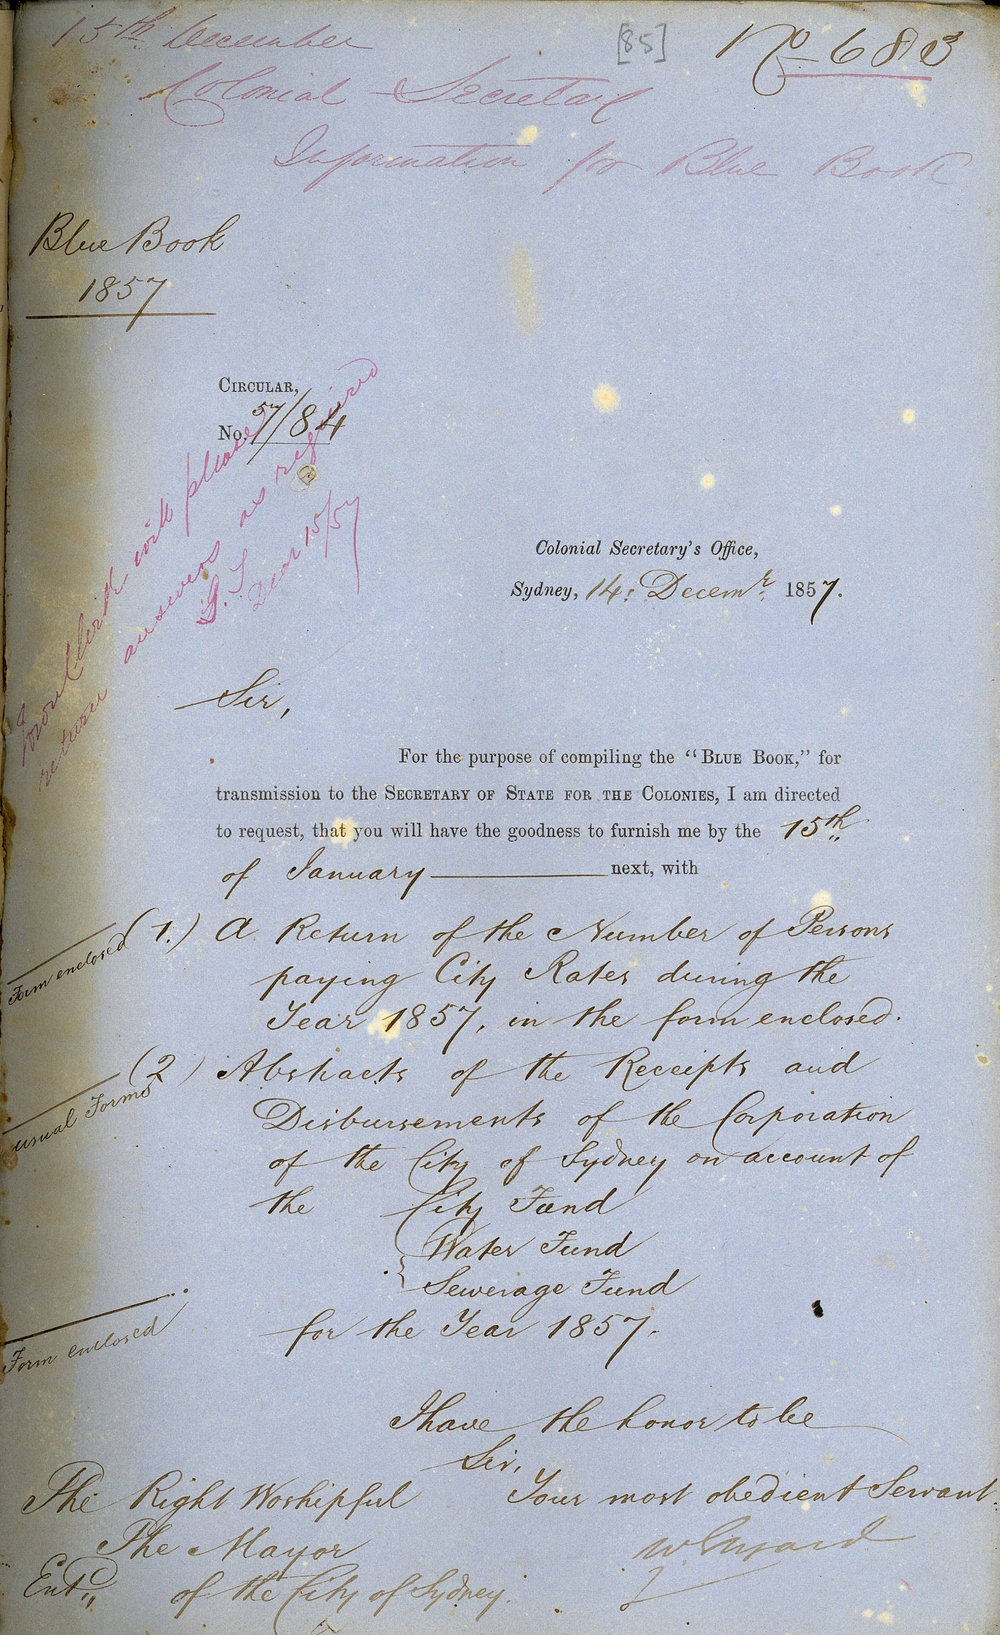 15th December
[85]
No 683
Colonial Secretary
Information for Blue Book
Blue Book
1857
CIRCULAR,
No. 57/84
Town Clerk will please
return answers as required
G. T.
Decr 15/57
Colonial Secretary's Office,
Sydney, 14: Decemr. 1857.
Sir,
For the purpose of compiling the "BLUE BOOK," for
transmission to the SECRETARY OF STATE FOR THE COLONIES, I am directed
to request, that you will have the goodness to furnish me by the 15th
of January next, with
Form enclosed
(1.) A Return of the Number of Persons
paying City Rates during the
Year 1857, in the form enclosed.
usual Forms
(2) Abstracts of the Receipts and
Disbursements of the Corporation
of the City of Sydney on account of
the City Fund
Water Fund
Sewerage Fund
Form enclosed
for the Year 1857.
I have the honor to be
Sir,
Your most obedient Servant.
The Right Worshipful
The Mayor
of the City of Sydney.
Entd